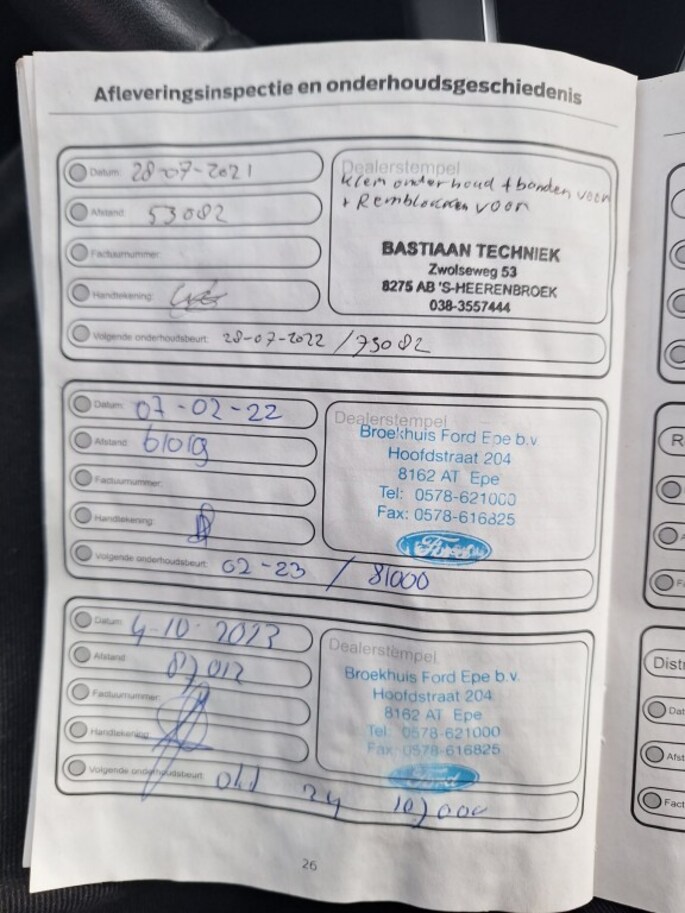 Afleveringsinspectie en onderhoudsgeschiedenis
Datum: 28-07-2021
Afstand: 53082
Factuurnummer:
Handtekening:
Volgende onderhoudsbeurt: 28-07-2022 / 73082
Dealerstempel
Klein onderhoud + banden voor
+ Remblokken voor
BASTIAAN TECHNIEK
Zwolseweg 53
8275 AB 'S-HEERENBROEK
038-3557444
Datum: 07-02-22
Afstand: 61019
Factuurnummer:
Handtekening:
Volgende onderhoudsbeurt: 02-23 / 81000
Dealerstempel
Broekhuis Ford Epe b.v.
Hoofdstraat 204
8162 AT Epe
Tel: 0578-621000
Fax: 0578-616825
Ford
Datum: 4-10-2023
Afstand: 87012
Factuurnummer:
Handtekening:
Volgende onderhoudsbeurt: okt 24 107000
Dealerstempel
Broekhuis Ford Epe b.v.
Hoofdstraat 204
8162 AT Epe
Tel: 0578-621000
Fax: 0578-616825
Ford
26
R
A
Fa
Distri
Dat
Afst
Fact